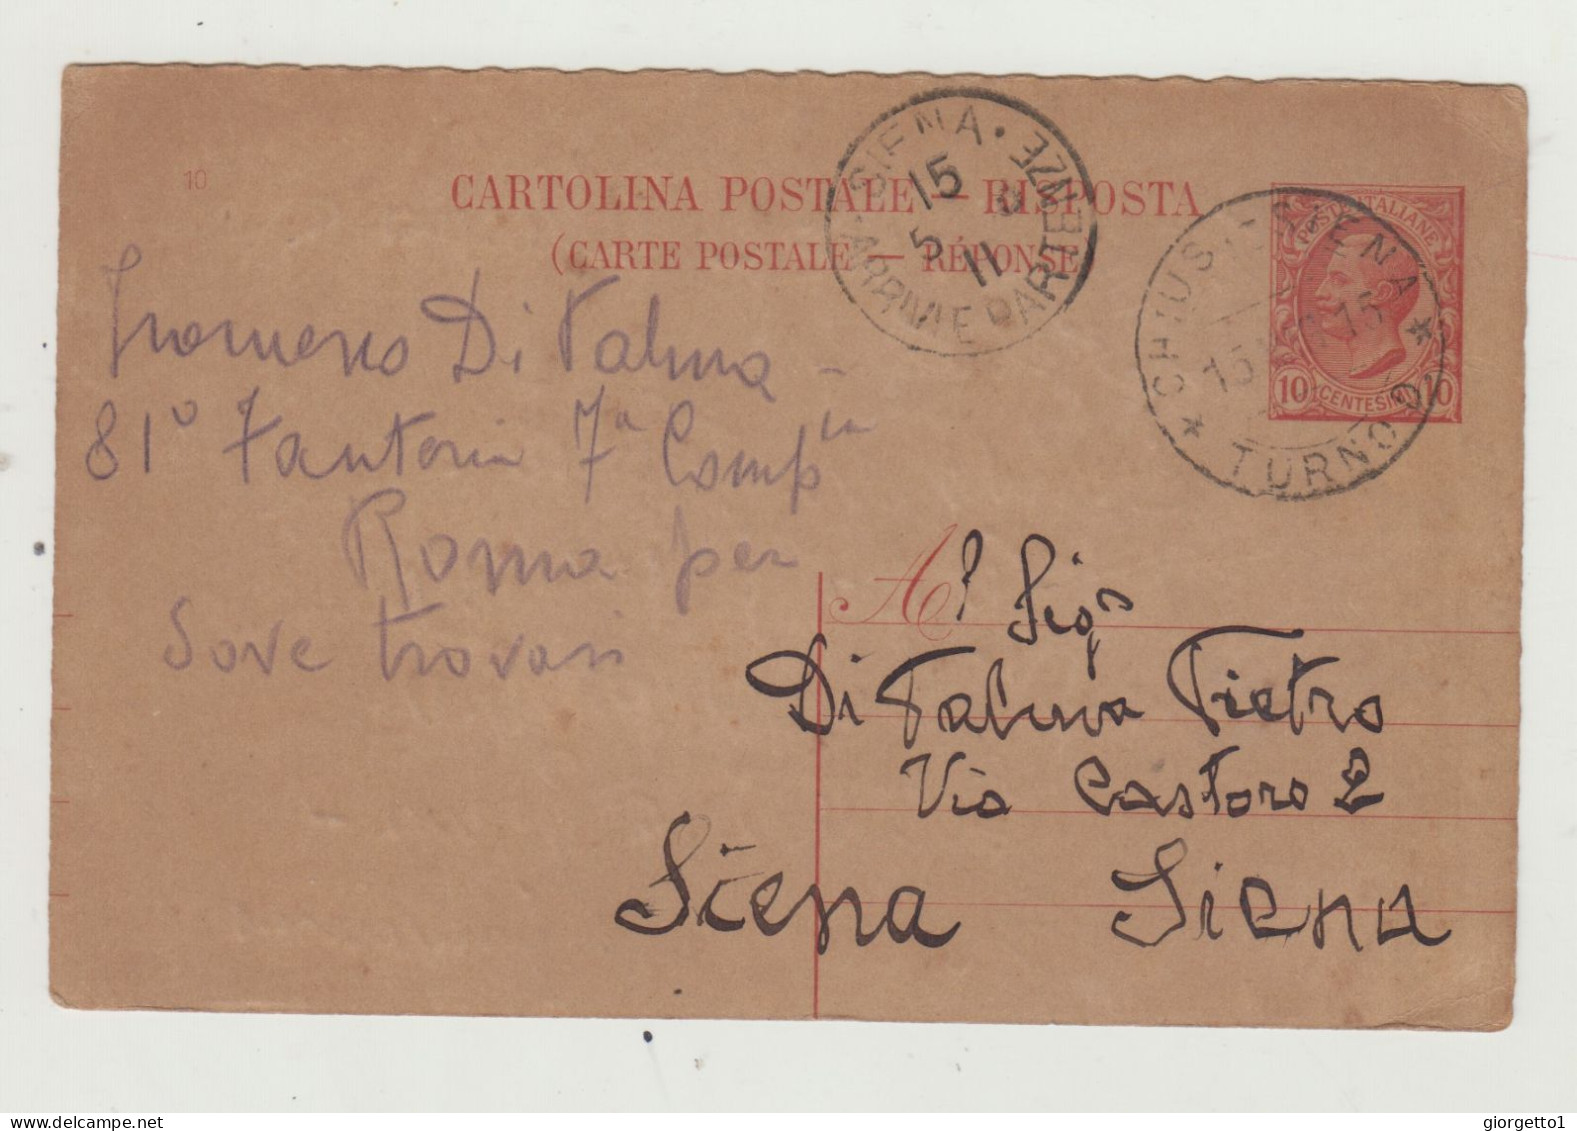 10
CARTOLINA POSTALE — RISPOSTA
(CARTE POSTALE — RÉPONSE
SIENA
15
5 11
ARRIVI E PARTENZE
CHIUSI-SIENA
15 15
TURNO
POSTE ITALIANE
10 CENTESIMI 10
Di Palma
81° Fanteria 7a Compia
Roma per
dove trovasi
Al Sigr
Di Palma Pietro
Via Castoro 2
Siena Siena
giorgetto1